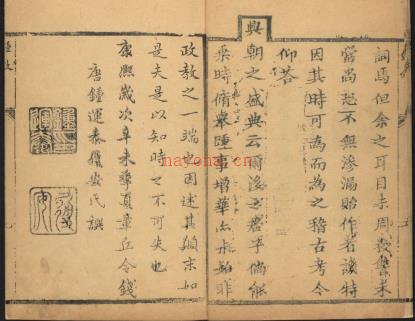 詞焉但余之耳目未周 未
當尚恐不無滲漏貽作者譏特
因其時可為而為之稽古考今
仰荅
興朝之盛典云爾後之君子倘能
乘時脩舉踵事增華亦未始非
政教之一端也因述其顛末如
是夫是以知時之不可失也
康熙歲次辛未 夏章丘令錢
唐鍾運泰 安氏譔
nayona.cn